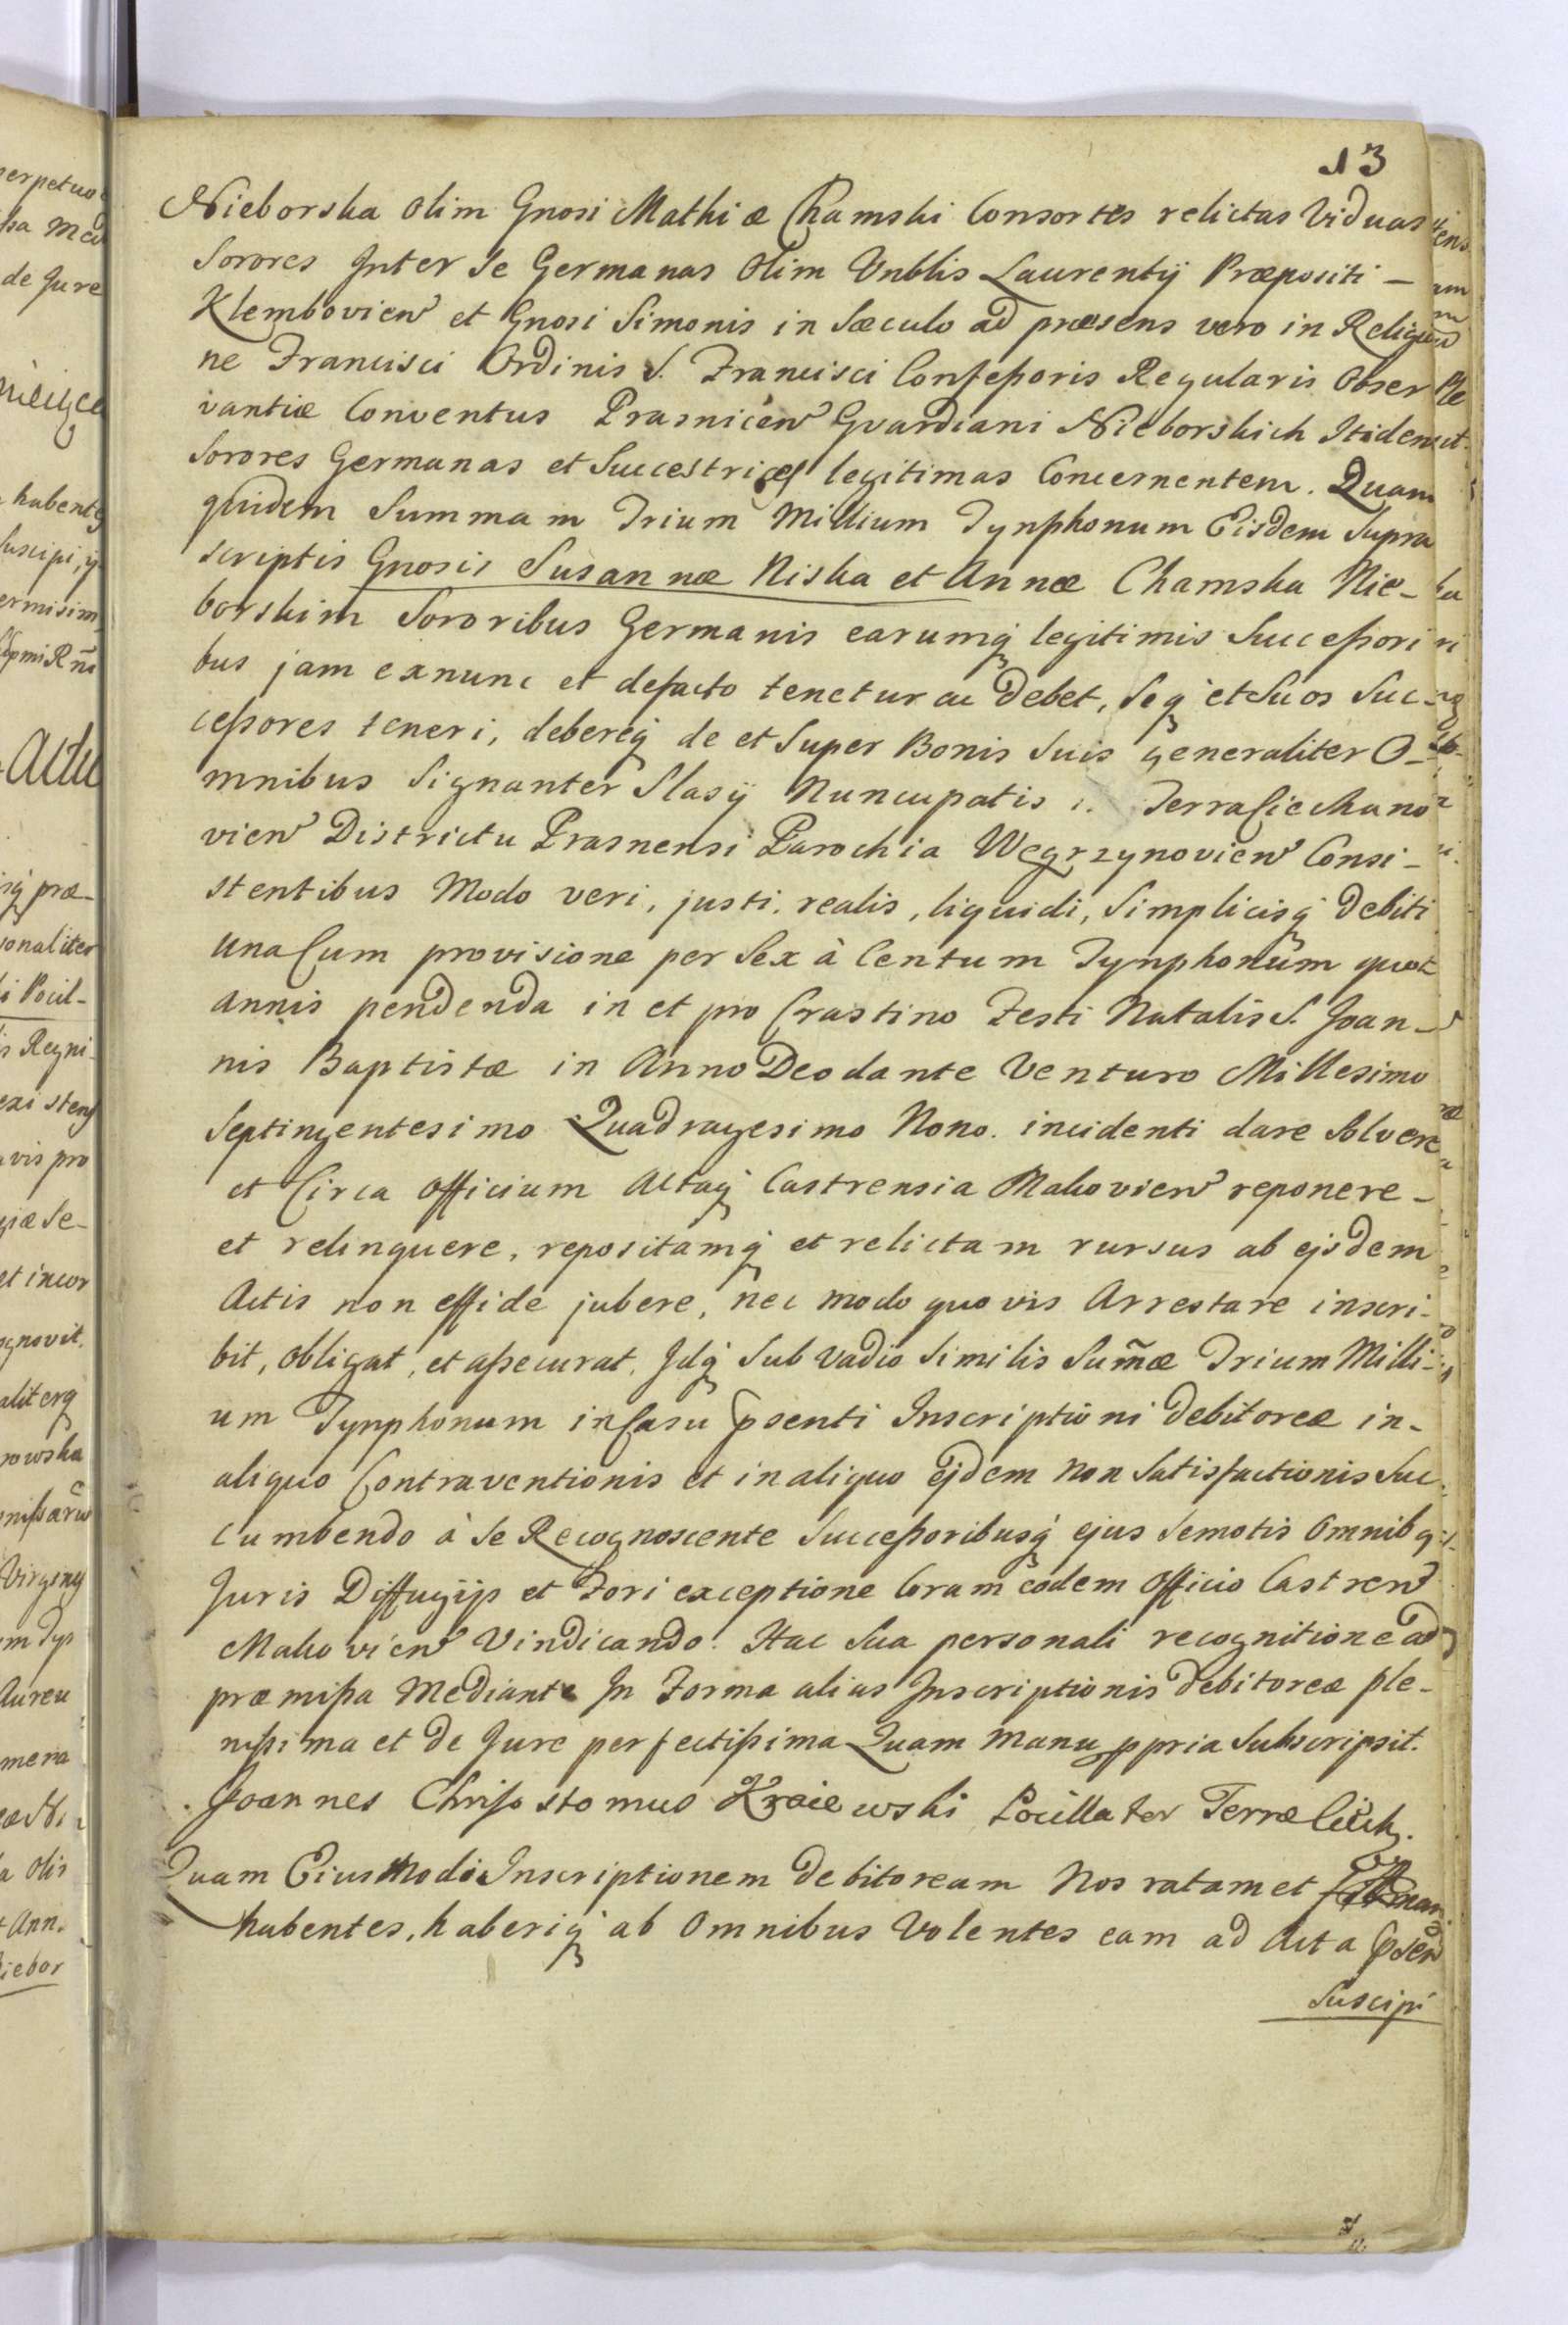 13
Nieborska olim Gnosi Mathiæ Chamski Consortes relictas Viduas
Sorores Inter se Germanas Olim Vnblis Laurentÿ Præpositi –
Klembovien et Gnosi Simonis in Sæculo ad præsens vero in Religio
ne Francisci Ordinis S. Francisci Confeßoris Regularis Obser
vantiæ Conventus Prasnicen Gvardiani Nieborskich Itidem
Sorores Germanas et Succestrices legitimas Concernentem. Quam
quidem Summam Trium Millium Tynphonum Eisdem Supra
scriptis Gnosis Susannæ Niska et Annæ Chamska Nie-
borskim Sororibus Germanis earumq legitimis Succeßori
bus jam exnunc et defacto tenetur ac Debet, Seq et Suos Suc-
ceßores teneri, debereq de et Super Bonis Suis generaliter O-
mnibus Signanter Slasÿ Nuncupatis i. Terra Ciechano
vien Districtu Prasnensi Parochia Węgrzynovien Consi-
stentibus Modo veri, justi, realis, liquidi, Simplicisq Debiti
una Cum provisione per Sex à Centum Tynphonum quot
annis pendenda in et pro Crastino Festi Natalis S. Joan-
nis Baptistæ in Anno Deo dante Venturo Millesimo
Septingentesimo Quadragesimo Nono. incidenti dare Solvere
et Circa Officium Actaq Castrensia Makovien reponere –
et relinquere, repositamq et relictam rursus ab ejsdem
Actis non effide jubere, nec modo quovis Arrestare inscri-
bit, obligat, et aßecurat. Idq Sub Vadio Similis Sum̃æ Trium Milli-
um Tynphonum in Casu pſenti Inscriptioni Debitoreæ in-
aliquo Contraventionis et in aliquo Ejdem Non Satisfactionis Suc
cumbendo à Se Recognoscente Succeßoribusq ejus Semotis Omnibq
Juris Diffugijs et Fori exceptione Coram eodem Officio Castren
Makovien Vindicando. Hac Sua personali recognitione ad
præmißa Mediante In Forma alias Inscriptionis Debitoreæ ple-
nißima et De Jure perfectißima Quam Manu ppria Subscripsit.
Joannes Chrisostomus Kraiewski Pocillator Terræ Ciech.
Quam Eius Modi Inscriptionem Debitoream Nos ratam et
habentes, haberiq ab Omnibus Volentes eam ad Acta pſen
Suscipi